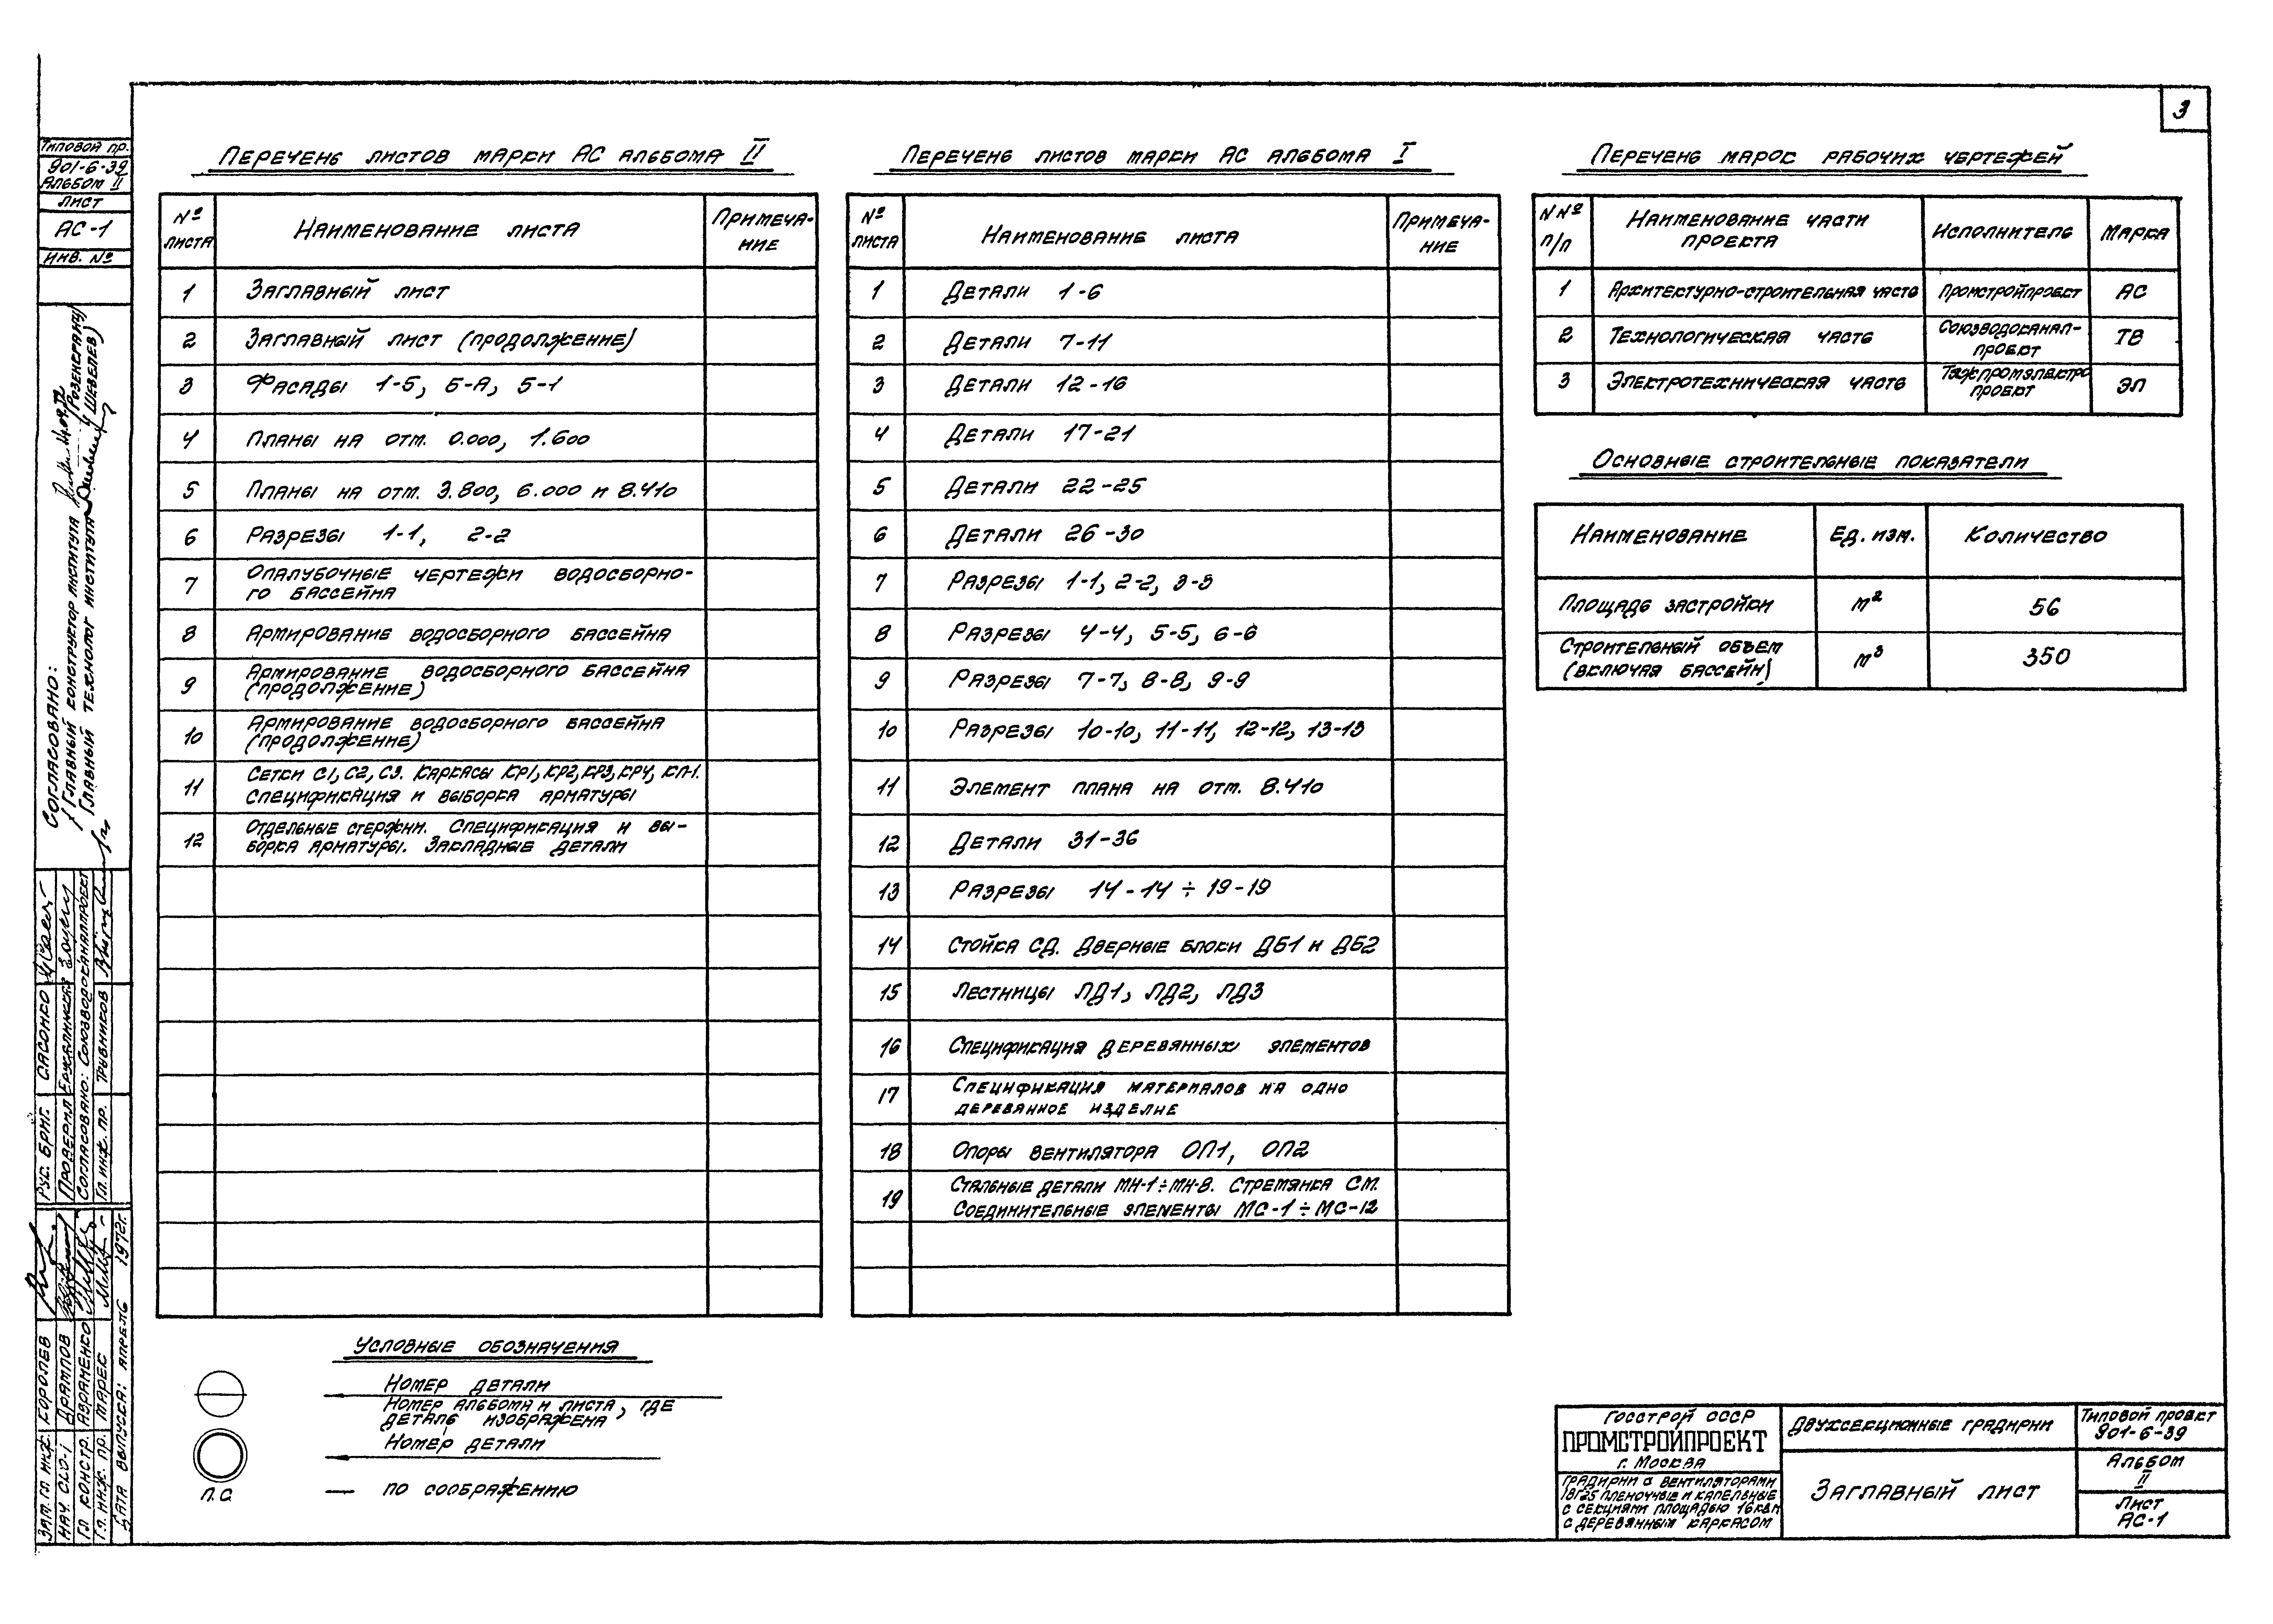 3
Типовой пр.
901-6-39
Альбом II
Лист
АС-1
Инв. №
Перечень листов марки АС альбома II
№ листа
Наименование листа
Примеча-
ние
1 Заглавный лист
2 Заглавный лист (продолжение)
3 Фасады 1-5, Б-А, 5-1
4 Планы на отм. 0.000, 1.600
5 Планы на отм. 3.800, 6.000 и 8.410
6 Разрезы 1-1, 2-2
7 Опалубочные чертежи водосборно-
го бассейна
8 Армирование водосборного бассейна
9 Армирование водосборного бассейна
(продолжение)
10 Армирование водосборного бассейна
(продолжение)
11 Сетки С1, С2, С3. Каркасы КР1, КР2, КР3, КР4, КП-1.
Спецификация и выборка арматуры
12 Отдельные стержни. Спецификация и вы-
борка арматуры. Закладные детали
Перечень листов марки АС альбома I
№ листа
Наименование листа
Примеча-
ние
1 Детали 1-6
2 Детали 7-11
3 Детали 12-16
4 Детали 17-21
5 Детали 22-25
6 Детали 26-30
7 Разрезы 1-1, 2-2, 3-3
8 Разрезы 4-4, 5-5, 6-6
9 Разрезы 7-7, 8-8, 9-9
10 Разрезы 10-10, 11-11, 12-12, 13-13
11 Элемент плана на отм. 8.410
12 Детали 31-36
13 Разрезы 14-14 ÷ 19-19
14 Стойка СД. Дверные блоки ДБ1 и ДБ2
15 Лестницы ЛД1, ЛД2, ЛД3
16 Спецификация деревянных элементов
17 Спецификация материалов на одно
деревянное изделие
18 Опоры вентилятора ОП1, ОП2
19 Стальные детали МН-1÷МН-8. Стремянка СМ.
Соединительные элементы МС-1÷МС-12
Перечень марок рабочих чертежей
N№ п/п
Наименование части
проекта
Исполнитель
Марка
1 Архитектурно-строительная часть Промстройпроект АС
2 Технологическая часть Союзводоканал-
проект ТВ
3 Электротехническая часть Тяжпромэлектро
проект ЭЛ
Основные строительные показатели
Наименование Ед. изм. Количество
Площадь застройки м² 56
Строительный объем
(включая бассейн) м³ 350
Условные обозначения
Номер детали
Номер альбома и листа, где
деталь изображена
Номер детали
П.С. — по соображению
Госстрой СССР
ПРОМСТРОЙПРОЕКТ
г. Москва
Градирни с вентиляторами
1ВГ25 пленочные и капельные
с секциями площадью 16 кв.м
с деревянным каркасом
Двухсекционные градирни
Заглавный лист
Типовой проект
901-6-39
Альбом
II
Лист
АС-1
Согласовано:
Главный конструктор института /Розенкранц/
Главный технолог института /Шевелев/
14.04.72
Рук. бриг. Сасонко
Проверил
Согласовано: Союзводоканалпроект
Гл. инж. пр. Трубников
Зам. гл. инж. Королев
Нач. ОСО-1
Гл. констр. Абраменко
Гл. инж. пр. Марек
Дата выпуска: апрель 1972г.